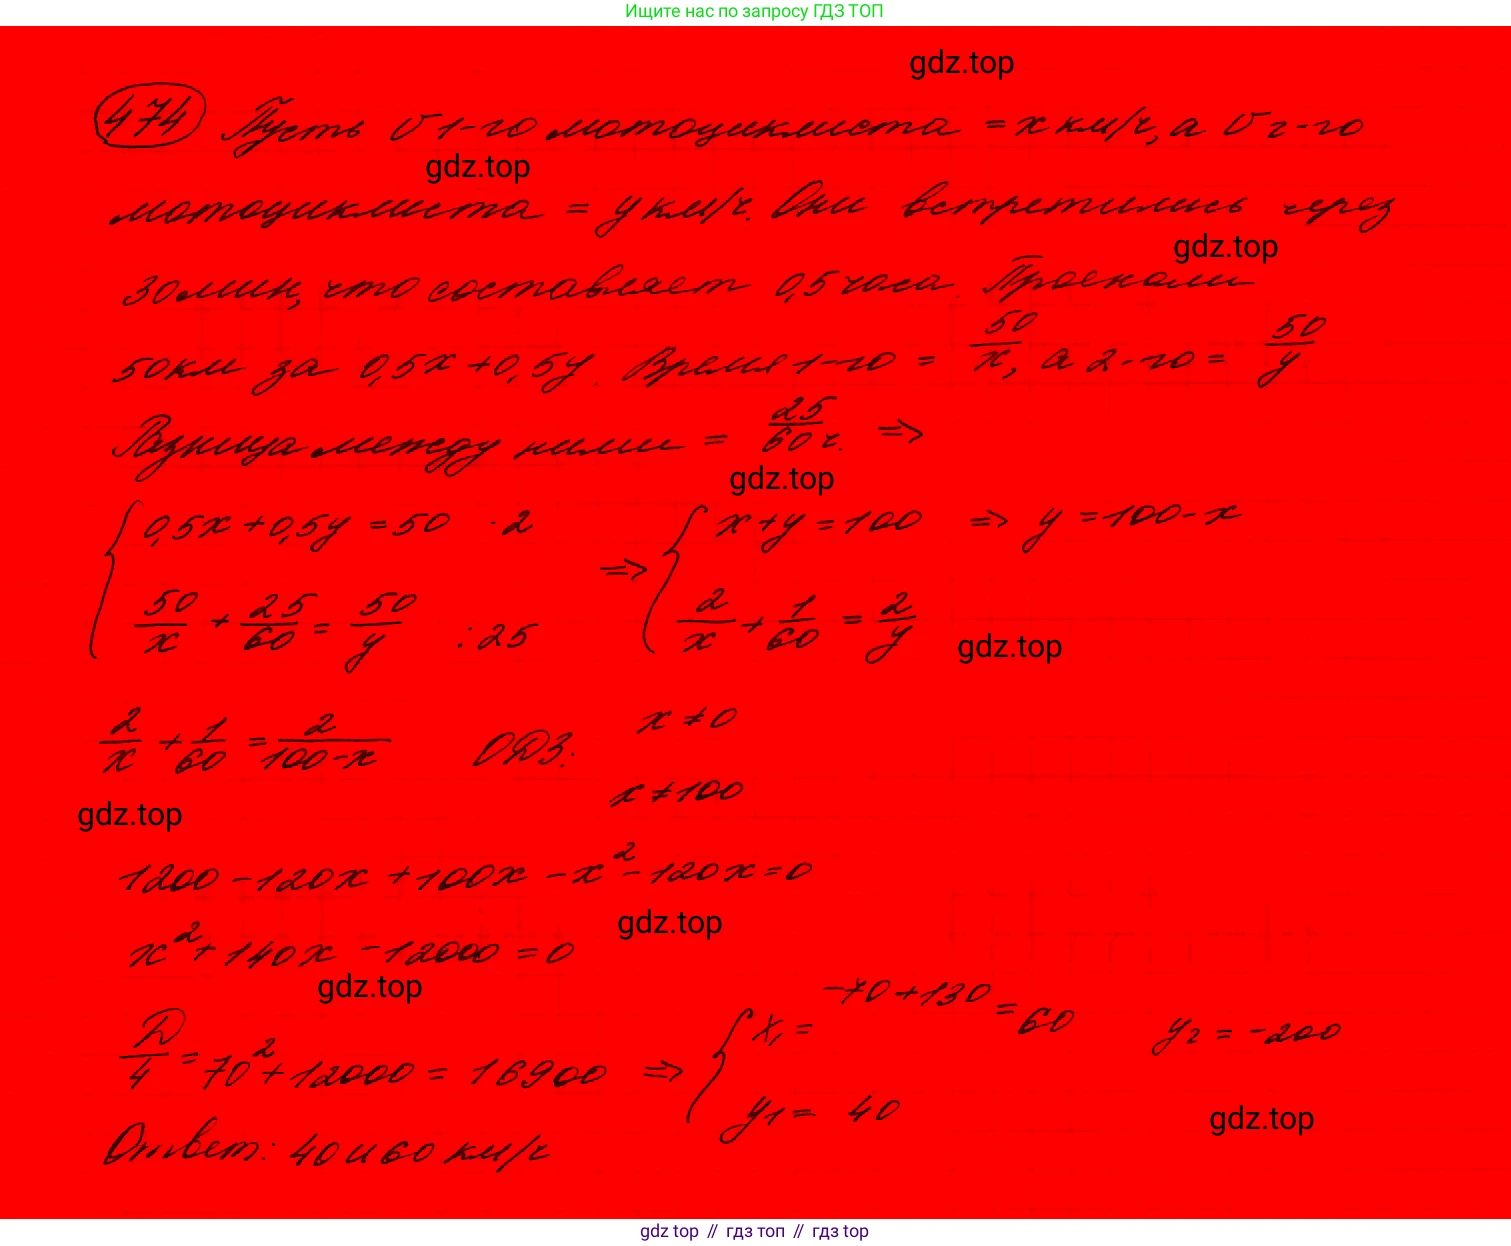 Ищите нас по запросу ГДЗ ТОП
gdz.top
474 Пусть v 1-го мотоциклиста = x км/ч, а v 2-го
gdz.top
мотоциклиста = y км/ч. Они встретились через
gdz.top
30 мин, что составляет 0,5 часа. Проехали
50 км за 0,5x + 0,5y. Время 1-го = 50/x, а 2-го = 50/y
Разница между ними = 25/60 ч. =>
gdz.top
{ 0,5x + 0,5y = 50 · 2 => { x + y = 100 => y = 100 - x
50/x + 25/60 = 50/y : 25 2/x + 1/60 = 2/y
gdz.top
2/x + 1/60 = 2/(100-x) ОДЗ: x ≠ 0
x ≠ 100
gdz.top
1200 - 120x + 100x - x² - 120x = 0
gdz.top
x² + 140x - 12000 = 0
gdz.top
D/4 = 70² + 12000 = 16900 => { x₁ = -70 + 130 = 60 y₂ = -200
y₁ = 40
gdz.top
Ответ: 40 и 60 км/ч
gdz top // гдз топ // гдз top